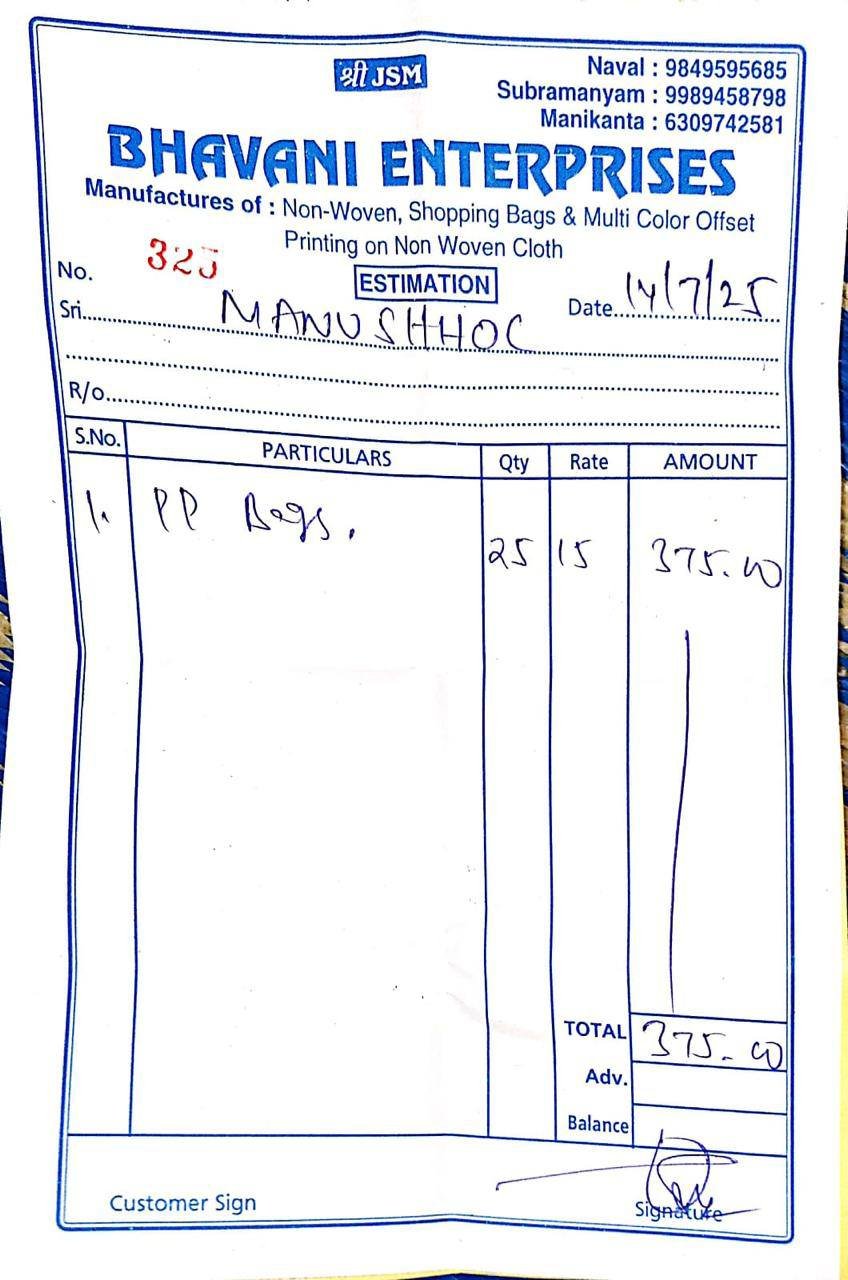 श्री JSM
Naval : 9849595685
Subramanyam : 9989458798
Manikanta : 6309742581
BHAVANI ENTERPRISES
Manufactures of : Non-Woven, Shopping Bags & Multi Color Offset
Printing on Non Woven Cloth
No. 325
ESTIMATION
Date 14/7/25
Sri MANUSHHOC
R/o
S.No. PARTICULARS Qty Rate AMOUNT
1. PP Bags. 25 15 375.00
TOTAL 375.00
Adv.
Balance
Customer Sign Signature